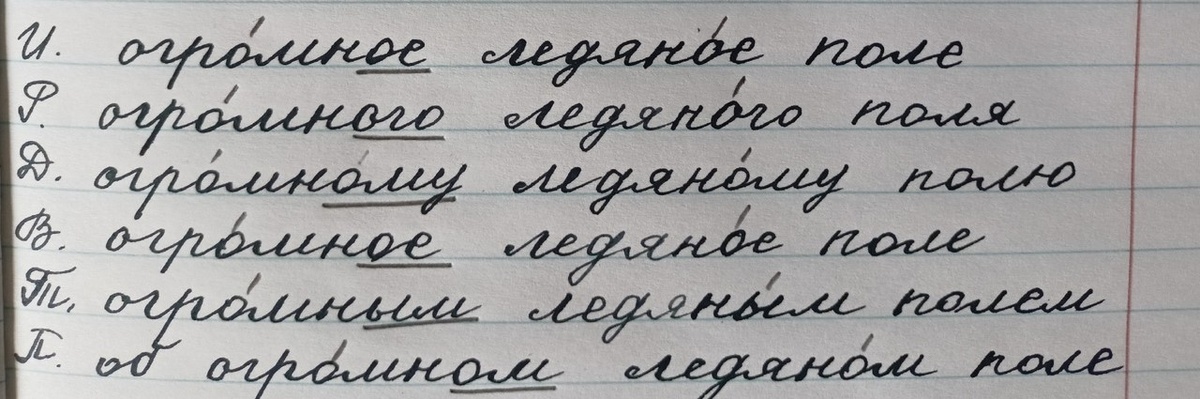 И. огро́мное ледяно́е поле
Р. огро́много ледяно́го поля
Д. огро́мно́му ледяно́му полю
В. огро́мное ледяно́е поле
Т. огро́мным ледяны́м полем
П. об огро́мном ледяно́м поле